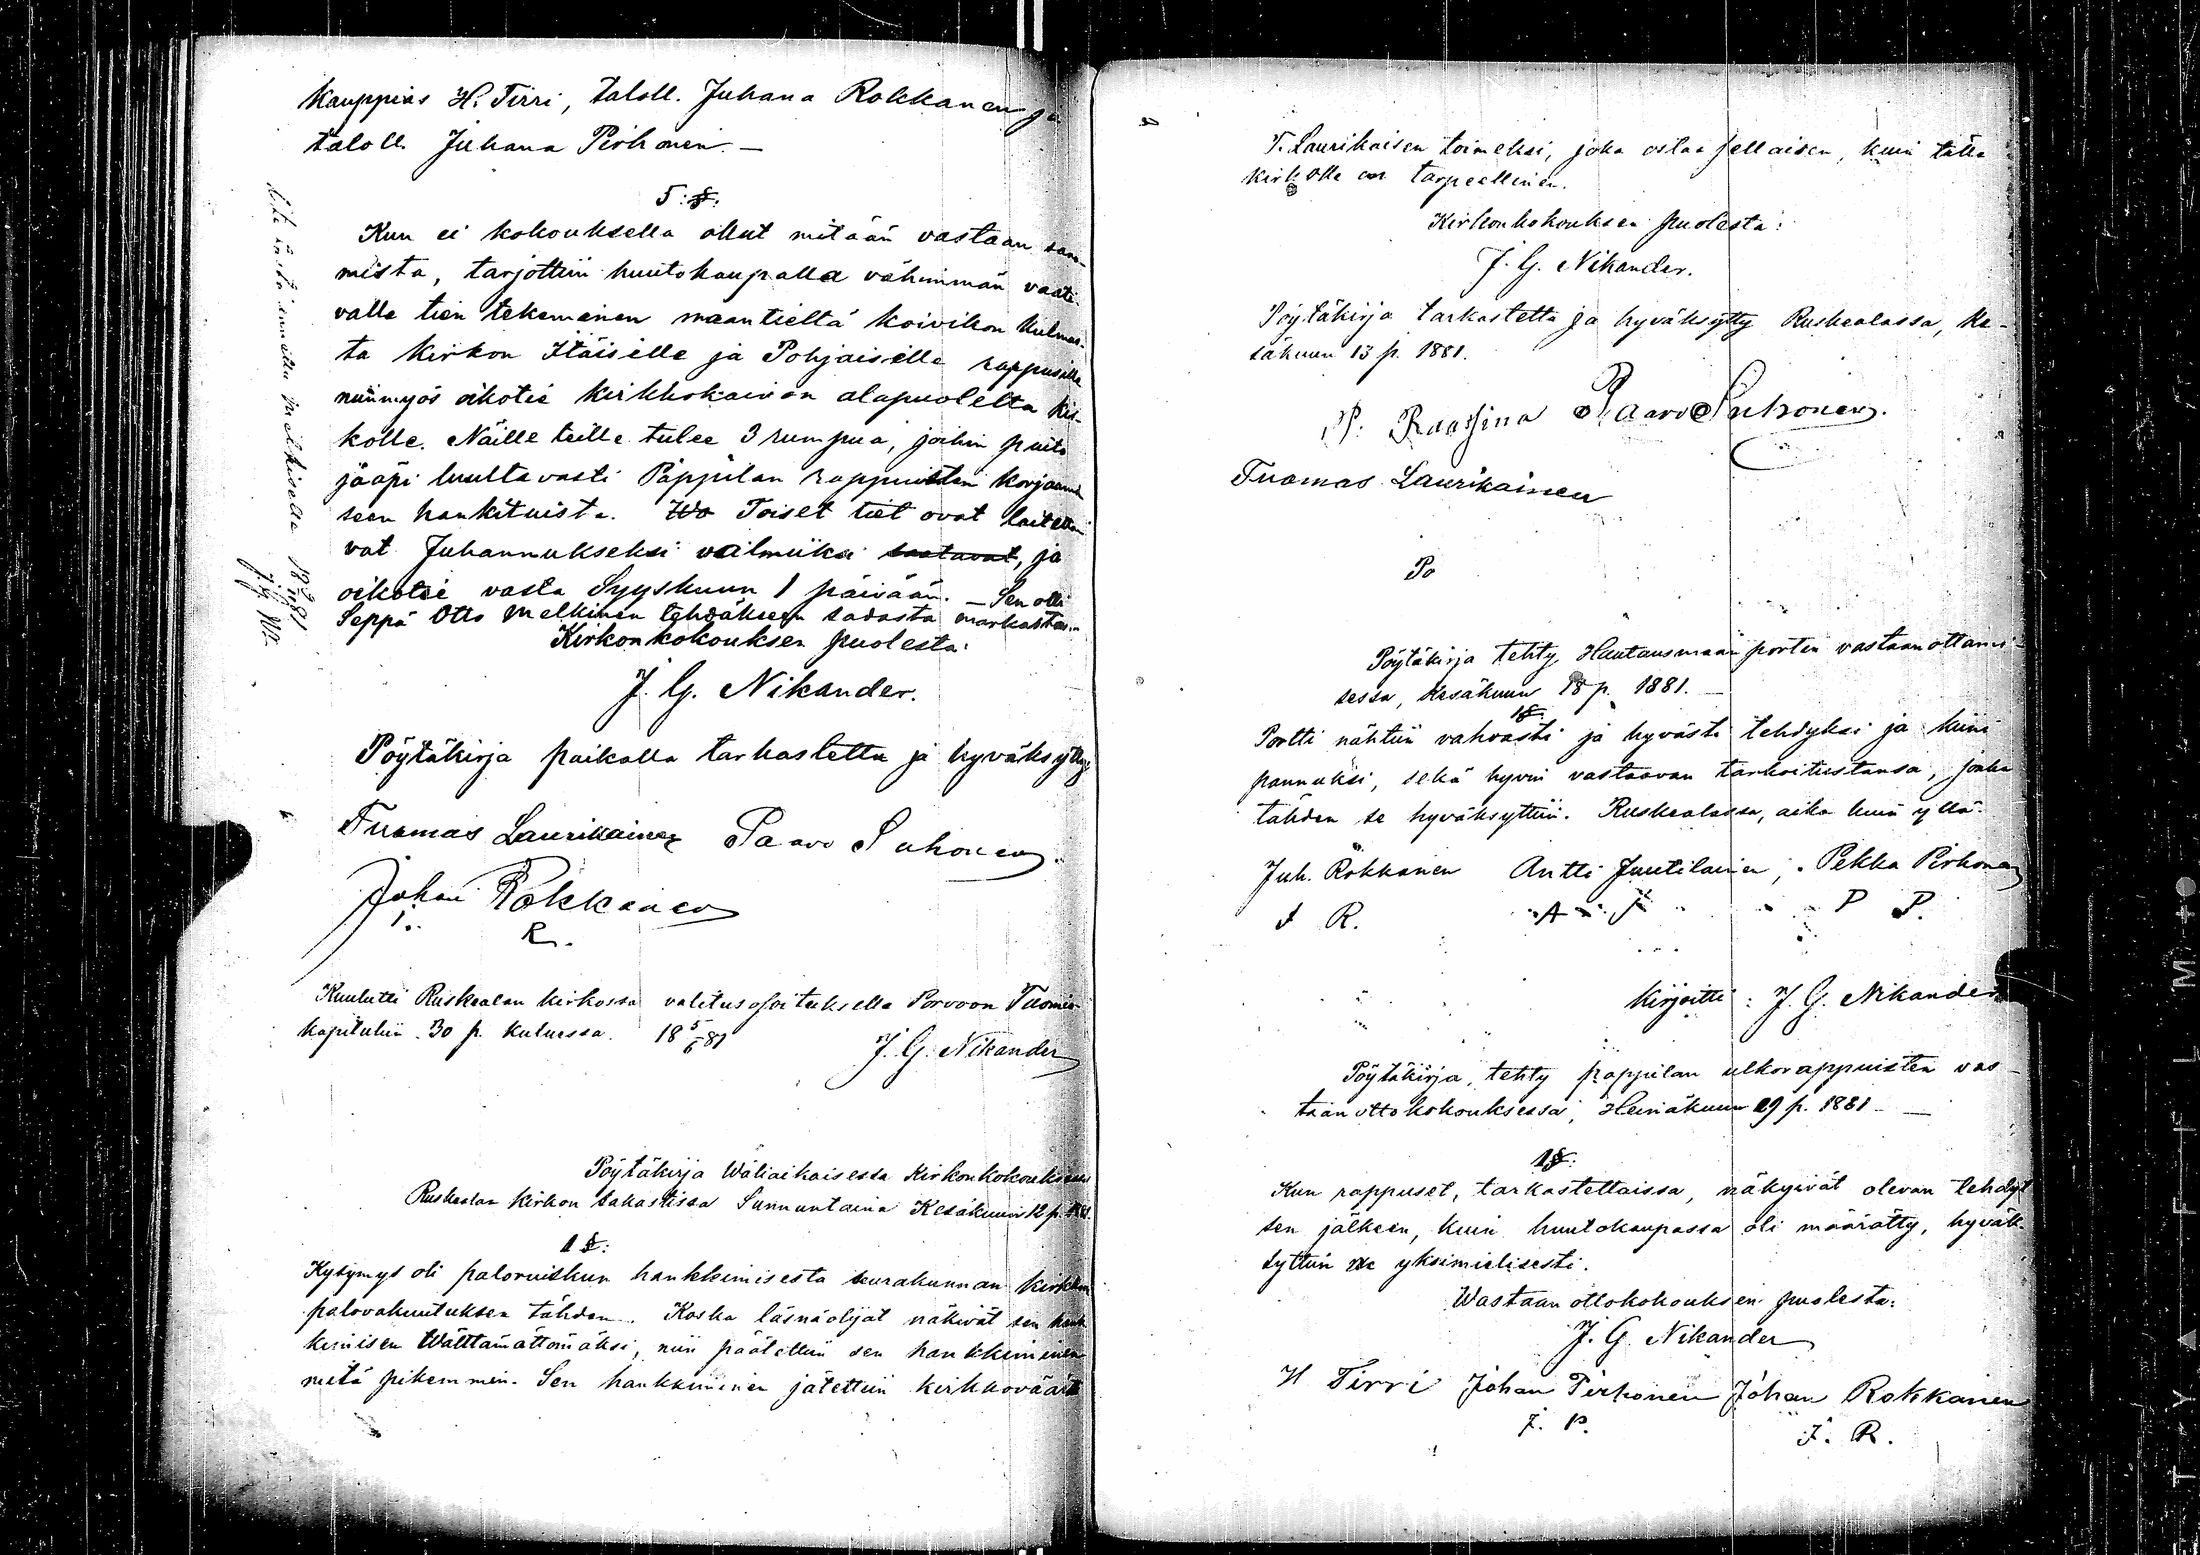 Kauppias H. Tirri, taloll. Juhana Rokkanen ja
taloll. Juhana Pirhonen. —
5: §.
Kun ei kokouksella ollut mitään vastaan sano-
mista, tarjottiin huutokaupalla vähimmän vaati-
valle tien tekeminen maantieltä koivikon kulmas-
ta kirkon Itäiselle ja Pohjaiselle rappusille
niinmyös oikotie kirkkokaivon alapuolelta kir-
kolle. Näille teille tulee 3 rumpua, joihin puita
jääpi luultavasti Pappilan rappuisten korjaami-
seen hankituista. Wo Toiset tiet ovat laitetta-
vat Juhannukseksi valmiiksi saatavat, ja
oikotie vasta Syyskuun 1 päivään. — Sen otti
Seppä Otto Melkinen tehdäkseen sadasta markasta.
Kirkonkokouksen puolesta:
J. G. Nikander.
Pöytäkirja paikalla tarkastettu ja hyväksytty
Tuomas Laurikainen Paavo Suhonen.
Johan Rokkanen
I. R.
Kuulutti Ruskealan kirkossa valitusosoituksella Porvoon Tuomio-
kapituliin 30 p. kuluessa. 18 5/6 81
J. G. Nikander
Pöytäkirja Wäliaikaisessa Kirkonkokouksessa
Ruskealan kirkon sakastissa Sunnuntaina Kesäkuun 12 p. 1881.
1 §:
Kysymys oli paloruiskun hankkimisesta seurakunnan kirkkon
palovakuutuksen tähden. Koska läsnäolijat näkivät sen hank-
kimisen Wälttämättömäksi, niin päätettiin sen hankkiminen
mitä pikemmin. Sen hankkiminen jätettiin kirkkoväärti
T. Laurikaisen toimeksi, joka ostaa sellaisen, kuin tälle
kirkolle on tarpeellinen.
Kirkonkokouksen puolesta:
J. G. Nikander.
Pöytäkirja tarkastettu ja hyväksytty Ruskealassa, Ke-
säkuun 13 p. 1881.
P. Raassina Paavo Suhonen.
Tuomas Laurikainen
Po
Pöytäkirja tehty Hautausmaan portin vastaanottami-
sessa, Kesäkuun 18 p. 1881. —
1 §.
Portti nähtiin vahvasti ja hyvästi tehdyksi ja kiini
pannuksi, sekä hyvin vastaavan tarkoitustansa, jonka
tähden se hyväksyttiin. Ruskealassa, aika kuin yllä.
Juh. Rokkanen Antti Juutilainen, Pekka Pirhonen
I R. A J P P.
Kirjoitti: J. G. Nikander
Pöytäkirja, tehty pappilan ulkorappuisten vas-
taanottokokouksessa, Heinäkuun 29 p. 1881. —
1 §:
Kun rappuset, tarkastettaissa, näkyivät olevan tehdyt
sen jälkeen, kuin huutokaupassa oli määrätty, hyväk-
syttiin ne yksimielisesti.
Wastaanottokokouksen puolesta:
J. G. Nikander
H Tirri Johan Pirhonen Johan Rokkanen
J. P. J. R.